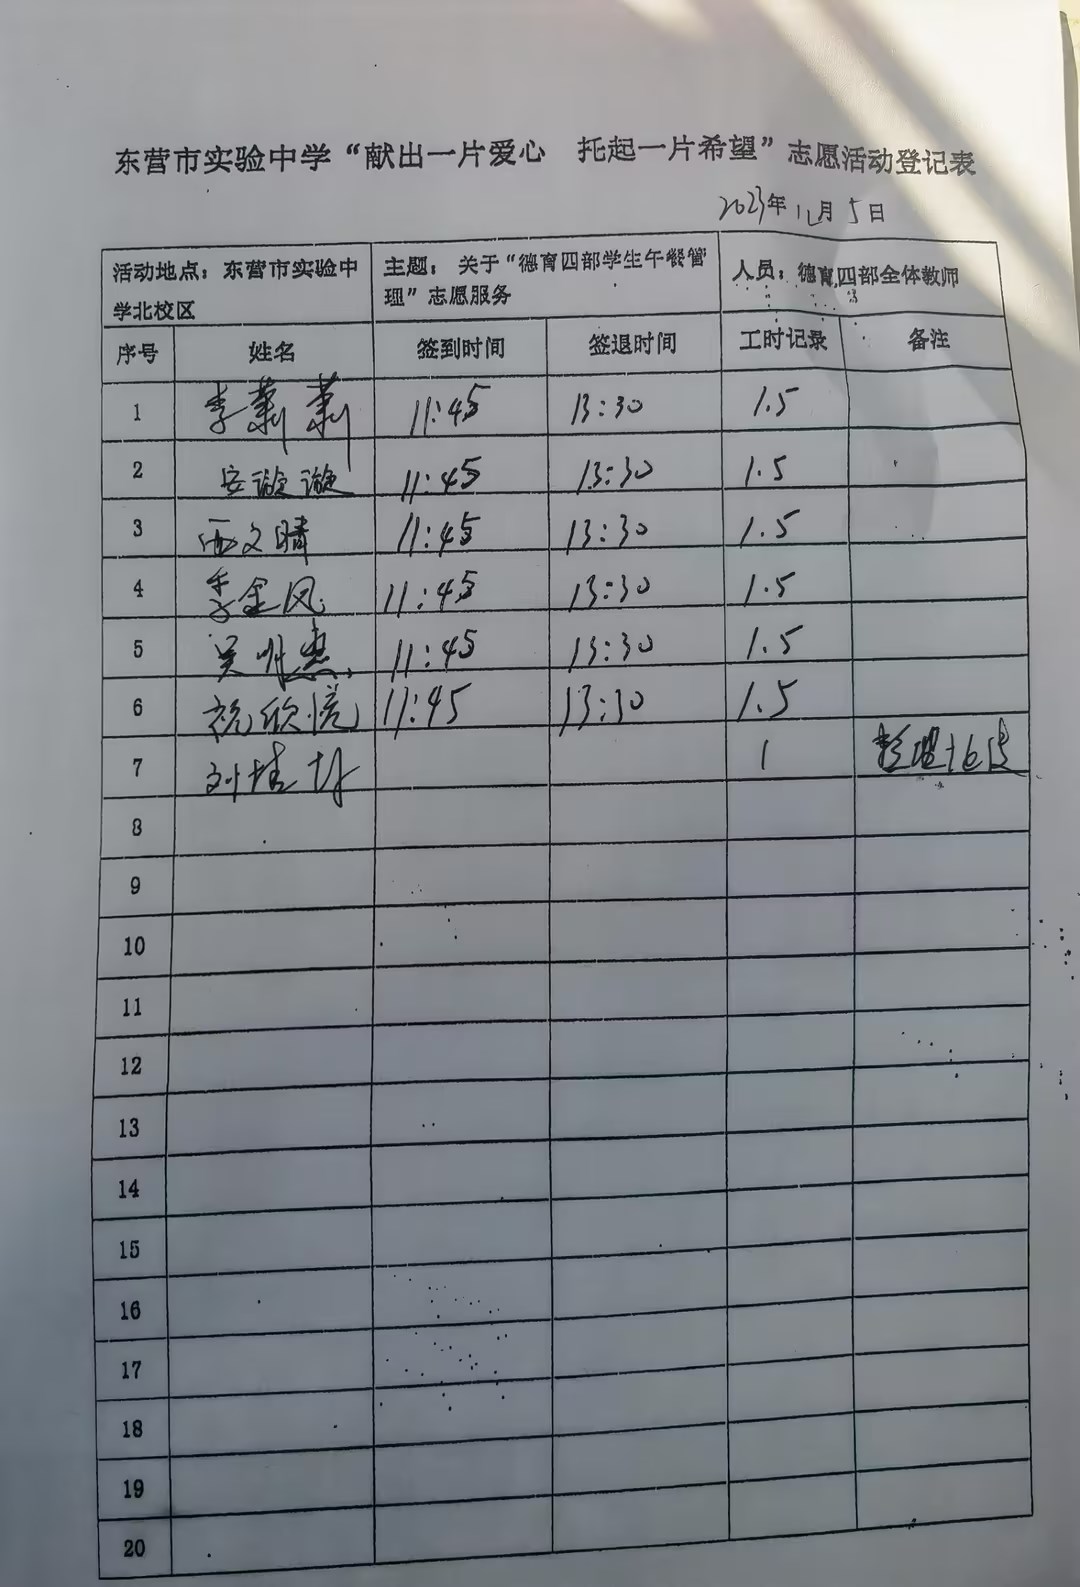 东营市实验中学“献出一片爱心 托起一片希望”志愿活动登记表
2023年12月5日
活动地点：东营市实验中学北校区 主题：关于“德育四部学生午餐管理”志愿服务 人员：德育四部全体教师
序号 姓名 签到时间 签退时间 工时记录 备注
1 李萧萧 11:45 13:30 1.5
2 安璇璇 11:45 13:30 1.5
3 文晴 11:45 13:30 1.5
4 李金凤 11:45 13:30 1.5
5 吴 惠 11:45 13:30 1.5
6 祝欣悦 11:45 13:30 1.5
7 刘 1
8
9
10
11
12
13
14
15
16
17
18
19
20